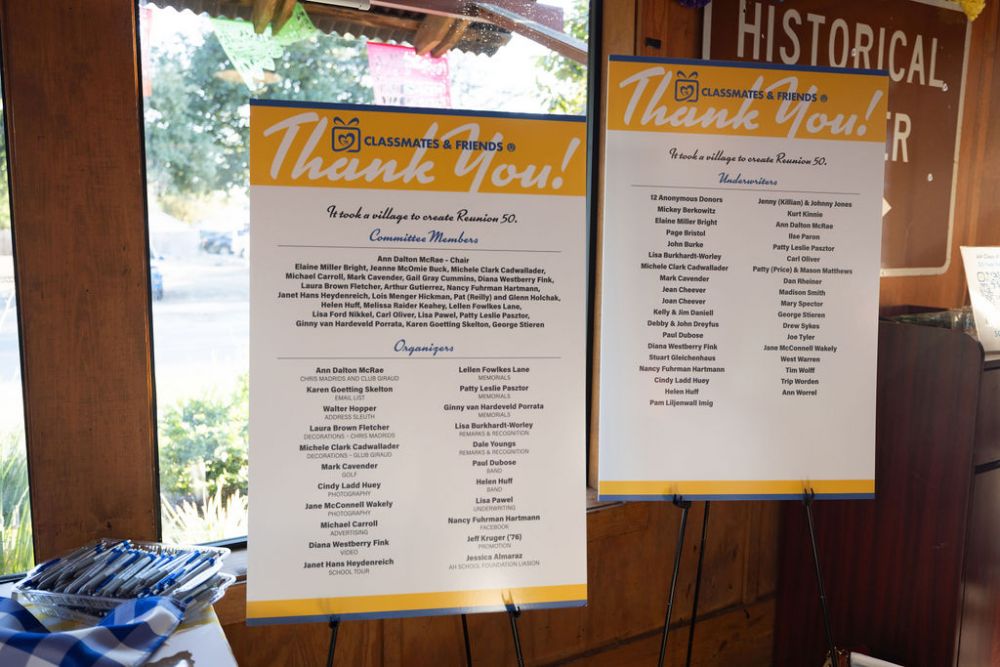 CLASSMATES & FRIENDS ®
Thank You!
It took a village to create Reunion 50.
Committee Members
Ann Dalton McRae - Chair
Elaine Miller Bright, Jeanne McOmie Buck, Michele Clark Cadwallader,
Michael Carroll, Mark Cavender, Gail Gray Cummins, Diana Westberry Fink,
Laura Brown Fletcher, Arthur Gutierrez, Nancy Fuhrman Hartmann,
Janet Hans Heydenreich, Lois Menger Hickman, Pat (Reilly) and Glenn Holchak,
Helen Huff, Melissa Raider Keahey, Lellen Fowlkes Lane,
Lisa Ford Nikkel, Carl Oliver, Lisa Pawel, Patty Leslie Pasztor,
Ginny van Hardeveld Porrata, Karen Goetting Skelton, George Stieren
Organizers
Ann Dalton McRae
CHRIS MADRIDS AND CLUB GIRAUD
Karen Goetting Skelton
EMAIL LIST
Walter Hopper
ADDRESS SLEUTH
Laura Brown Fletcher
DECORATIONS - CHRIS MADRIDS
Michele Clark Cadwallader
DECORATIONS - GLUB GIRAUD
Mark Cavender
GOLF
Cindy Ladd Huey
PHOTOGRAPHY
Jane McConnell Wakely
PHOTOGRAPHY
Michael Carroll
ADVERTISING
Diana Westberry Fink
VIDEO
Janet Hans Heydenreich
SCHOOL TOUR
Lellen Fowlkes Lane
MEMORIALS
Patty Leslie Pasztor
MEMORIALS
Ginny van Hardeveld Porrata
MEMORIALS
Lisa Burkhardt-Worley
REMARKS & RECOGNITION
Dale Youngs
REMARKS & RECOGNITION
Paul Dubose
BAND
Helen Huff
BAND
Lisa Pawel
UNDERWRITING
Nancy Fuhrman Hartmann
FACEBOOK
Jeff Kruger ('76)
PROMOTION
Jessica Almaraz
AH SCHOOL FOUNDATION LIASION
CLASSMATES & FRIENDS ®
Thank You!
It took a village to create Reunion 50.
Underwriters
12 Anonymous Donors
Mickey Berkowitz
Elaine Miller Bright
Page Bristol
John Burke
Lisa Burkhardt-Worley
Michele Clark Cadwallader
Mark Cavender
Jean Cheever
Joan Cheever
Kelly & Jim Daniell
Debby & John Dreyfus
Paul Dubose
Diana Westberry Fink
Stuart Gleichenhaus
Nancy Fuhrman Hartmann
Cindy Ladd Huey
Helen Huff
Pam Liljenwall Imig
Jenny (Killian) & Johnny Jones
Kurt Kinnie
Ann Dalton McRae
Ilse Paron
Patty Leslie Pasztor
Carl Oliver
Patty (Price) & Mason Matthews
Dan Rheiner
Madison Smith
Mary Spector
George Stieren
Drew Sykes
Joe Tyler
Jane McConnell Wakely
West Warren
Tim Wolff
Trip Worden
Ann Worrel
HISTORICAL
ER